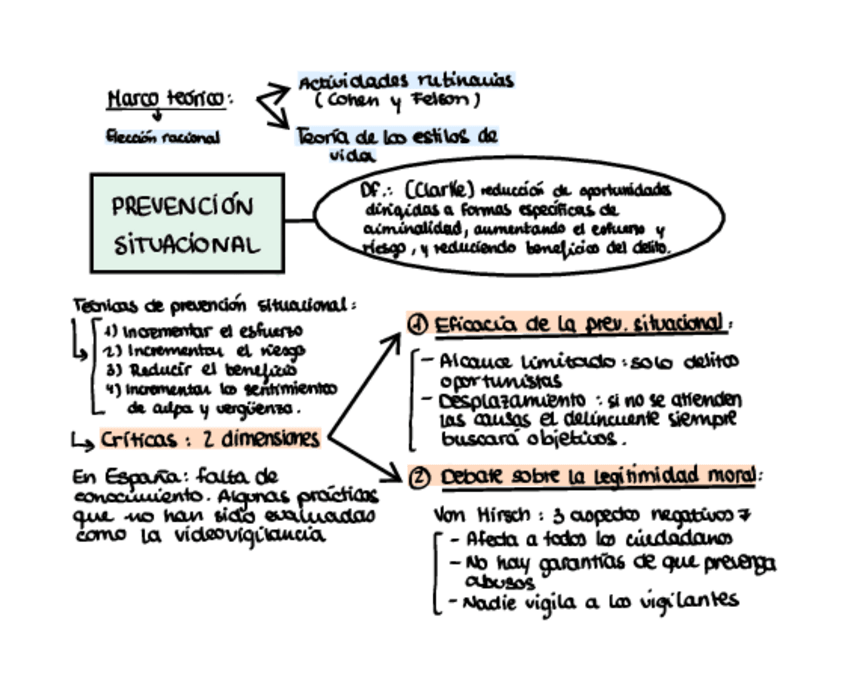 Marco teórico:
Elección racional
Actividades rutinarias
(Cohen y Felson)
Teoría de los estilos de
vida
PREVENCIÓN
SITUACIONAL
Df.: (Clarke) reducción de oportunidades
dirigidas a formas específicas de
criminalidad, aumentando el esfuerzo y
riesgo, y reduciendo beneficios del delito.
Técnicas de prevención situacional:
1) Incrementar el esfuerzo
2) Incrementar el riesgo
3) Reducir el beneficio
4) Incrementar los sentimientos
de culpa y vergüenza.
Críticas: 2 dimensiones
En España: falta de
conocimiento. Algunas prácticas
que no han sido evaluadas
como la videovigilancia
1) Eficacia de la prev. situacional:
- Alcance limitado: solo delitos
oportunistas
- Desplazamiento: si no se atienden
las causas el delincuente siempre
buscará objetivos.
2) Debate sobre la legitimidad moral:
Von Hirsch: 3 aspectos negativos
- Afecta a todos los ciudadanos
- No hay garantías de que prevenga
abusos
- Nadie vigila a los vigilantes